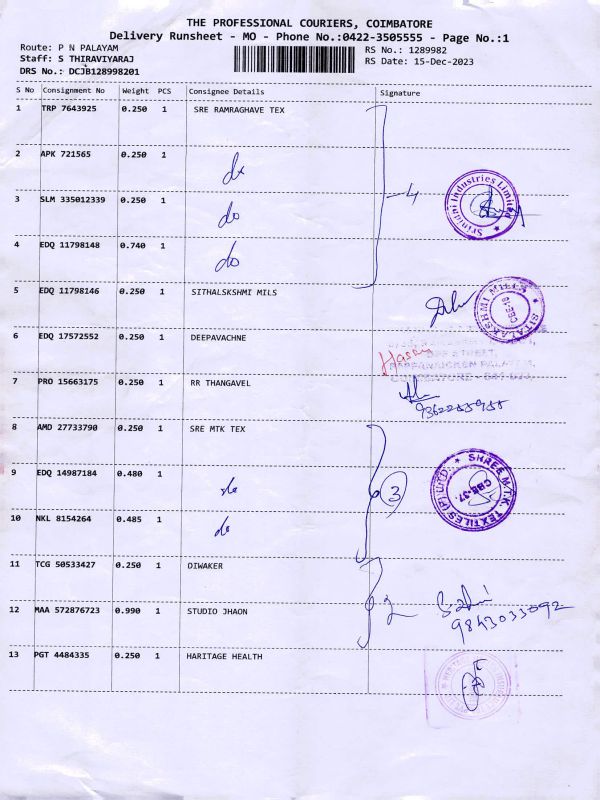 THE PROFESSIONAL COURIERS, COIMBATORE
Delivery Runsheet - MO - Phone No.:0422-3505555 - Page No.:1
Route: P N PALAYAM RS No.: 1289982
Staff: S THIRAVIYARAJ RS Date: 15-Dec-2023
DRS No.: DCJB128998201
S No Consignment No Weight PCS Consignee Details Signature
1 TRP 7643925 0.250 1 SRE RAMRAGHAVE TEX
2 APK 721565 0.250 1 do
3 SLM 335012339 0.250 1 do
4 EDQ 11798148 0.740 1 do
4
Srinidhi Industries Limited
5 EDQ 11798146 0.250 1 SITHALSKSHMI MILS
SITALAKSHMI MILLS
CBE-18
6 EDQ 17572552 0.250 1 DEEPAVACHNE
7 PRO 15663175 0.250 1 RR THANGAVEL
8 AMD 27733790 0.250 1 SRE MTK TEX
9 EDQ 14987184 0.480 1 do
10 NKL 8154264 0.485 1 do
3
SHREE M.T.K. TEXTILES (P) LTD
CBE-37
11 TCG 50533427 0.250 1 DIWAKER
12 MAA 572876723 0.990 1 STUDIO JHAON
2
9843033092
13 PGT 4484335 0.250 1 HARITAGE HEALTH